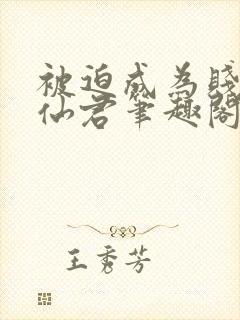 被迫成为贱
仙君笔趣阁
王秀芳